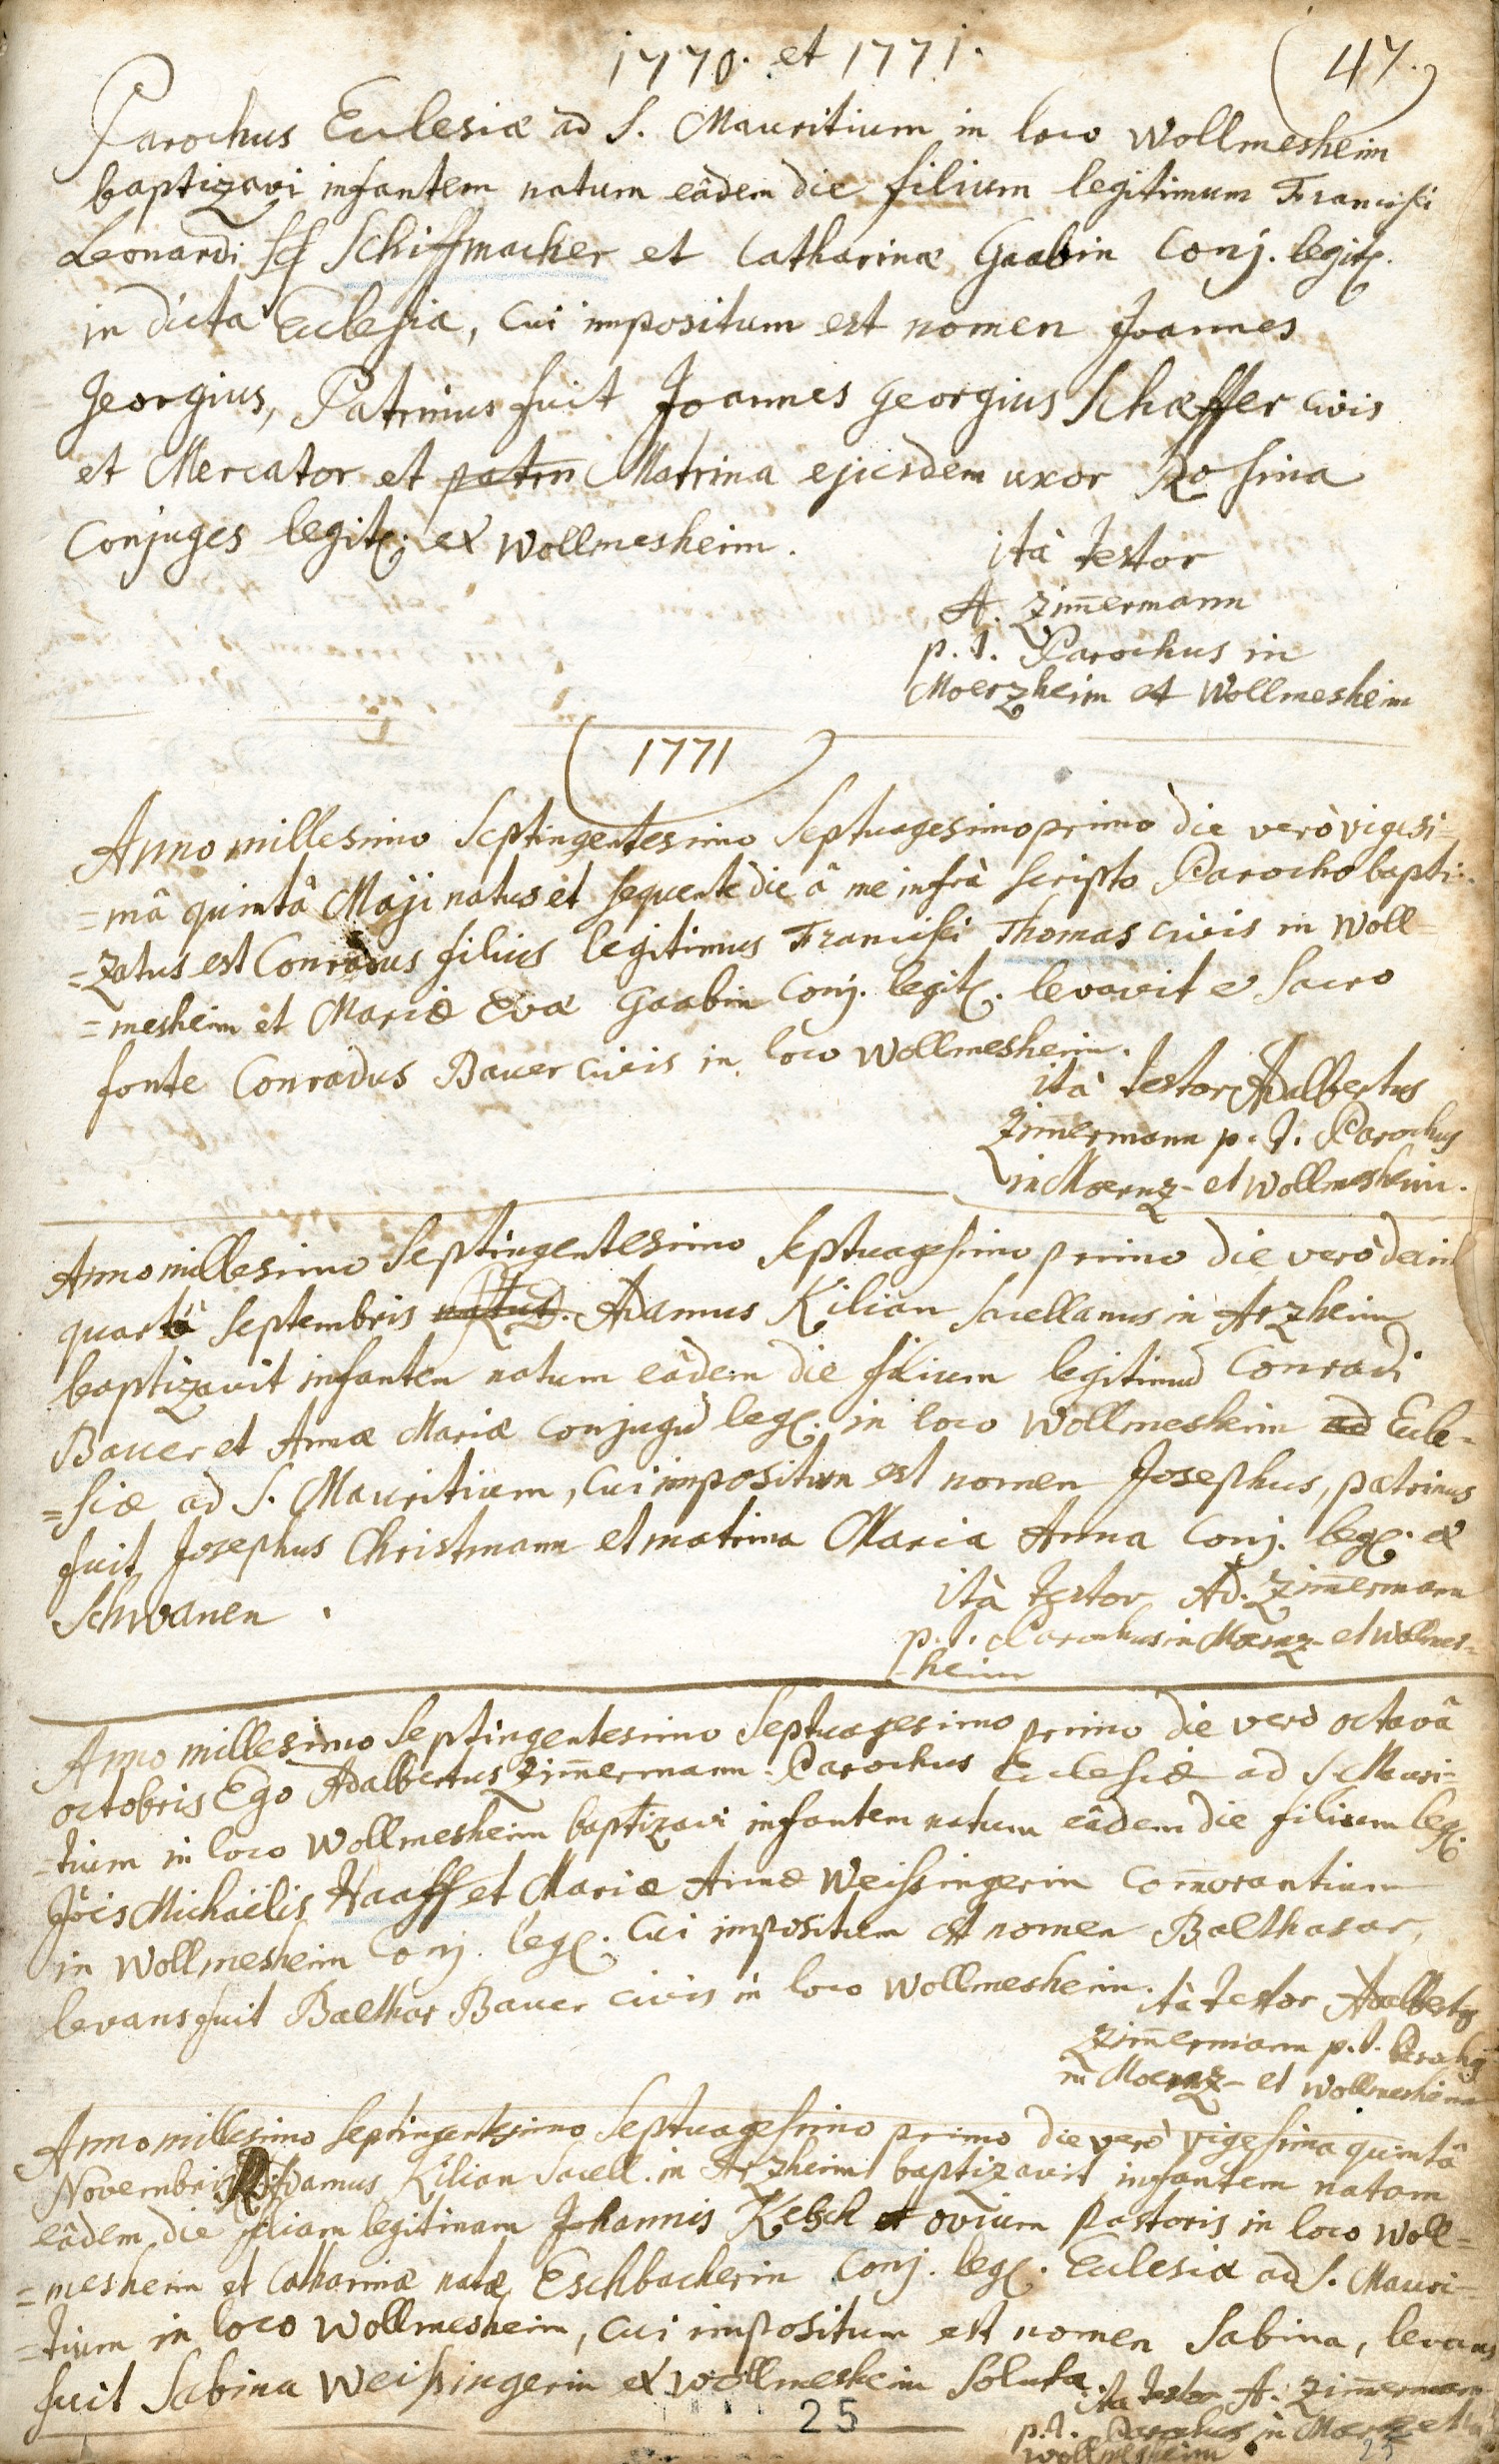 1770. et 1771.
47.
Parochus Eclesiæ ad S. Mauritium in loco Wollmesheim
baptizavi infantem natum eâdem die filium legitimum Francisci
Leonardi Sch Schiffmacher et Catharinæ Gaabin Conj. legit.
in dicta Eclesia, cui impositum est nomen Joannes
Georgius, Patrinus fuit Joannes Georgius Schæffer civis
et Mercator et patrin Matrina ejusdem uxor Rosina
Conjuges legit. ex Wollmesheim.
ità testor
A. Zim̄ermann
p. t. Parochus in
Moerzheim et Wollmesheim
1771
Anno millesimo Septingentesimo Septuagesimo primo die verò vigesi=
=mâ quintâ Maji natus et sequenti die â me infrà scripto Parocho bapti=
=zatus est Conradus filius legitimus Francisci Thomas civis in Woll=
=mesheim et Mariæ Evæ Gaabin Conj. legit. levavit e sacro
fonte Conradus Bauer civis in loco Wollmesheim.
ità testor Adalbertus
Zim̄ermann p. t. Parochus
in Moerz- et Wollmesheim.
Anno millesimo Septingentesimo Septuagesimo primo die verò decim
quartâ Septembris natus. Adamus Kilian Sacellanus in Arzheim
baptizavit infantem natum eâdem die filium legitimū Conradi
Bauer et Annæ Mariæ conjugū leg. in loco Wollmesheim ad Ecle=
=siæ ad S. Mauritium, cui impositum est nomen Josephus, patrinus
fuit Josephus Christmann et matrina Maria Anna Conj. leg. ex
Schwanen.
ità testor Ad. Zim̄ermann
p. t. Parochus in Moerz- et Wollmes=
=heim
Anno millesimo Septingentesimo Septuagesimo primo die verò octavâ
octobris Ego Adalbertus Zim̄ermann Parochus Eclesiæ ad S. Mauri=
=tium in loco Wollmesheim baptizavi infantem natum eâdem die filium leg.
Jôis Michaëlis Haaff et Mariæ Annæ Weissingerin com̄orantium
in Wollmesheim Conj. leg. cui impositum est nomen Balthasar,
levans fuit Balthas Bauer civis in loco Wollmesheim.
ità testor Adalbertus
Zim̄ermann p. t. Parochus
in Moerz- et Wollmesheim
Anno millesimo Septingentesimo Septuagesimo primo die verò vigesima quintâ
Novembris Adamus Kilian Sacell. in Arzheim baptizavit infantem natam
eâdem die filiam legitimam Johannis Kelsch et ovium Pastoris in loco Woll=
=mesheim et Catharinæ natæ Eschbacherin Conj. leg. Eclesiæ ad S. Mauri=
=tium in loco Wollmesheim, cui impositum est nomen Sabina, levans
fuit Sabina Weissingerin ex Wollmesheim soluta.
ita testor A. Zim̄ermann
p. t. Parochus in Moerz et
Wollmesheim
25
25